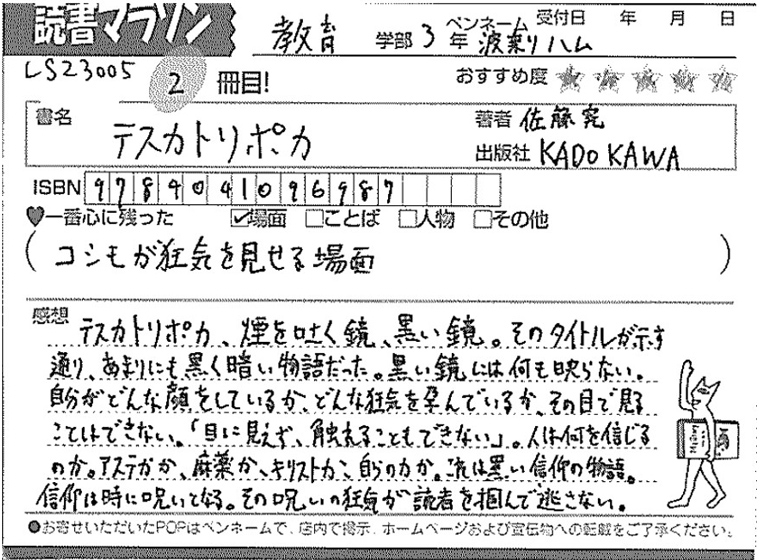 読書マラソン
教育 学部 3 年 ペンネーム 波乗りハム 受付日 年 月 日
LS23005 2 冊目! おすすめ度
書名 テスカトリポカ
著者 佐藤究
出版社 KADOKAWA
ISBN 9784041096987
一番心に残った 場面 ことば 人物 その他
(コシモが狂気を見せる場面)
感想 テスカトリポカ、煙を吐く鏡、黒い鏡。そのタイトルが示す
通り、あまりにも黒く暗い物語だった。黒い鏡には何も映らない。
自分がどんな顔をしているか、どんな狂気を孕んでいるか、その目で見る
ことはできない。「目に見えず、触れることもできない」。人は何を信じる
のか。アステカか、麻薬か、キリストか、自らの力か。これは黒い信仰の物語。
信仰は時に呪いとなる。その呪いの狂気が読者を掴んで逃さない。
●お寄せいただいたPOPはペンネームで、店内で掲示、ホームページおよび宣伝物への転載をご了承ください。